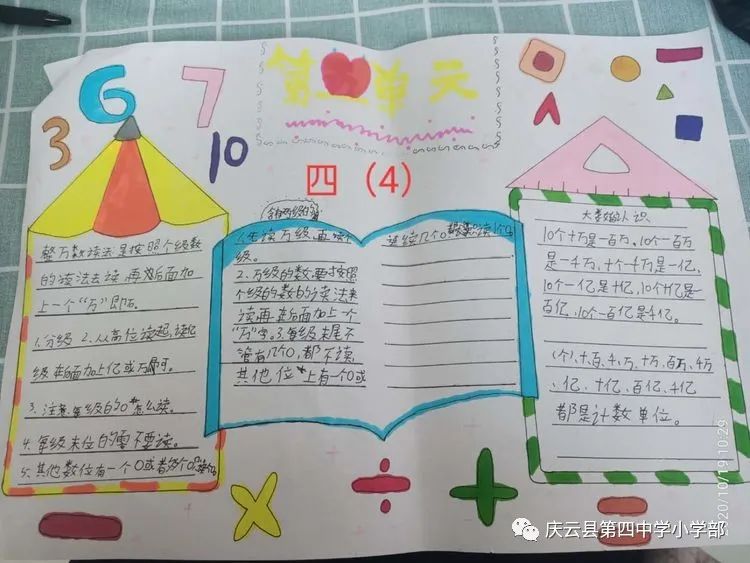 6
7
3
10
第 单元
四（4）
整万数读法是按照个级数
的读法去读,再在后面加
上一个"万"即可。
1.分级 2.从高位读起,读亿
级在后面加上亿或万即可。
3.注意每级的0怎么读。
4.每级末位的零不要读。
5.其他数位有一个0或者好多个0只读
含有两级的
1.先读万级,再读个
级。
2.万级的数要按照
个级的数的读法来
读,再在后面加上一个
"万"字。3.每级末尾不
管有几个0,都不读,
其他位上有一个0或
连续几个0都读一个0
大数的认识
10个十万是一百万,10个一百万
是一千万,十个一千万是一亿,
10个一亿是十亿,10个十亿是一
百亿,10个一百亿是千亿。
个、十、百、千、万、十万、百万、千万
、亿、十亿、百亿、千亿
都是计数单位。
2020/10/19 10:29
庆云县第四中学小学部